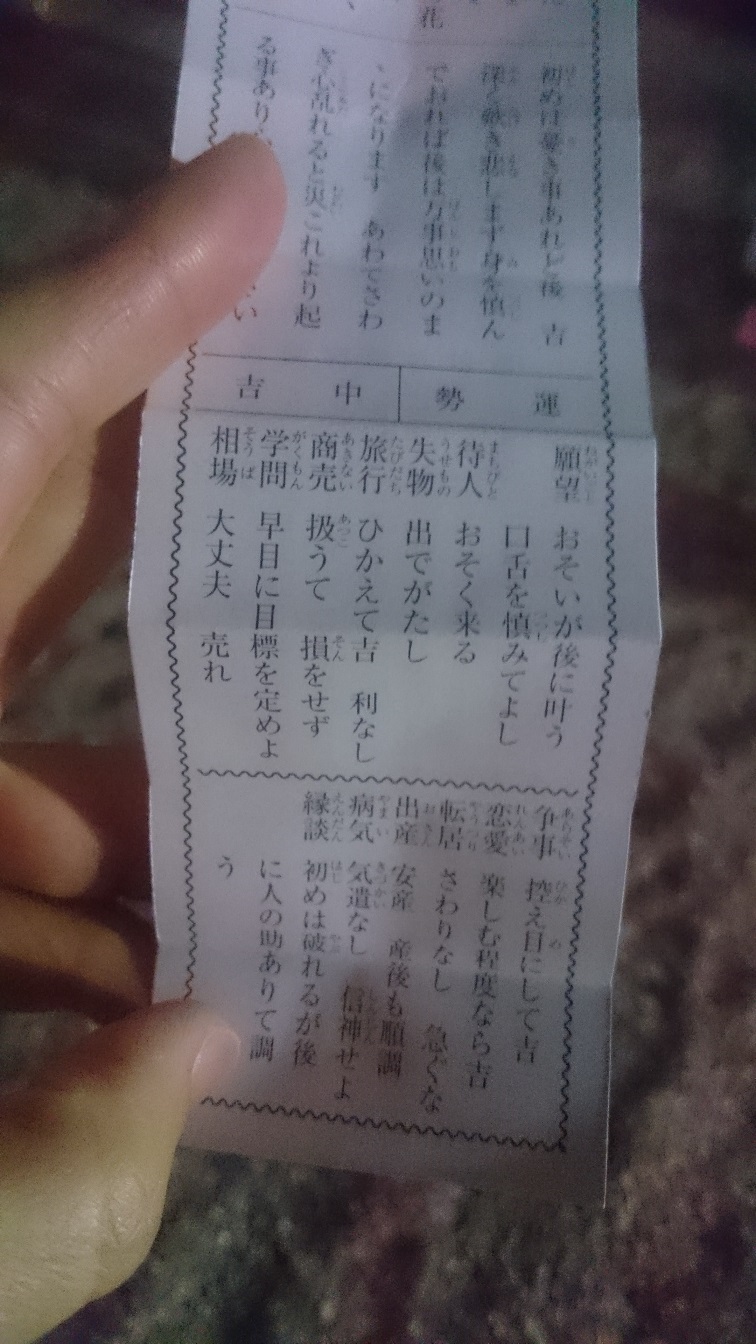 花
初めは憂き事あれど後 吉
深く歎き悲しまず身を慎ん
でおれば後は万事思いのま
ゝになります あわてさわ
ぎ心乱れると災これより起
る事あり
い
運勢 中吉
願望 おそいが後に叶う
口舌を慎みてよし
待人 おそく来る
失物 出でがたし
旅行 ひかえて吉 利なし
商売 扱うて 損をせず
学問 早目に目標を定めよ
相場 大丈夫 売れ
争事 控え目にして吉
恋愛 楽しむ程度なら吉
転居 さわりなし 急ぐな
出産 安産 産後も順調
病気 気遣なし 信神せよ
縁談 初めは破れるが後
に人の助ありて調
う